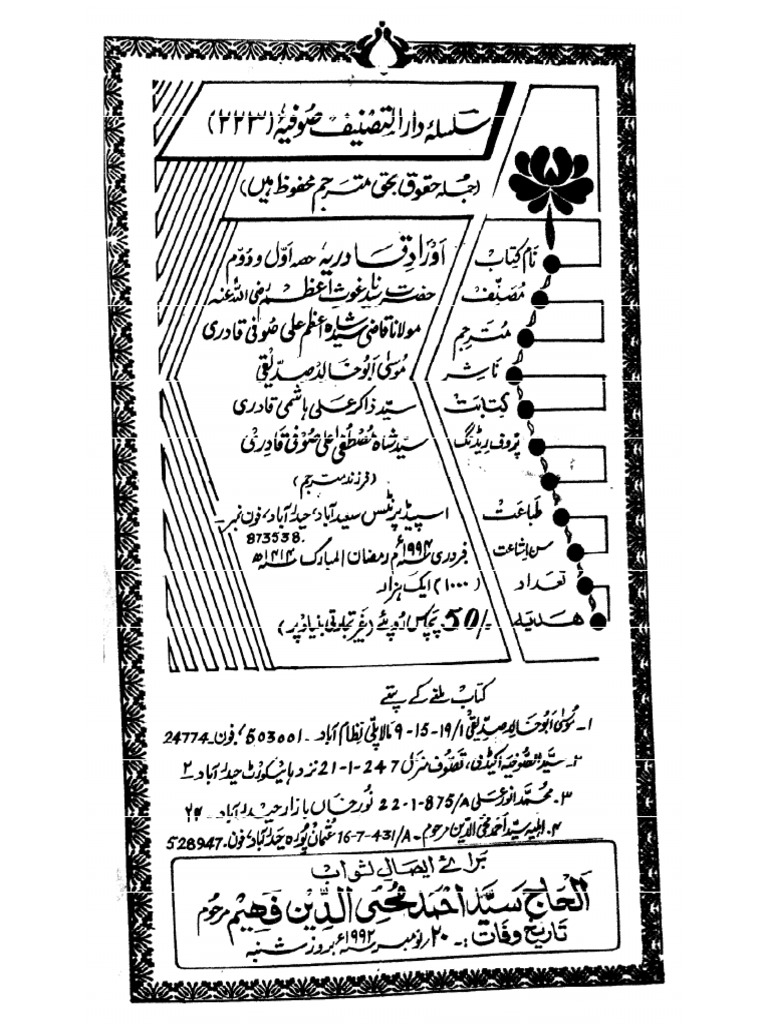 سلسلہ دار التصنیف صوفیہ (۲۲۳)
(جملہ حقوق بحق مترجم محفوظ ہیں)
نام کتاب اَورادِ قادریہ حصہ اوّل و دوّم
مصنّف حضرت سیّدنا غوث اعظم رضی اللہ عنہ
مترجم مولانا قاضی سید شاہ اعظم علی صوفی قادری
ناشر موسیٰ ابو خالد صدّیقی
کتابت سیّد ذاکر علی ہاشمی قادری
پروف ریڈنگ سیّد شاہ مصطفیٰ علی صوفی قادری
(فرزند مترجم)
طباعت اسپیڈ پرنٹس سعید آباد، حیدرآباد، فون نمبر۔
873538.
سن اشاعت فروری ۱۹۹۴ء م رمضان المبارک ۱۴۱۴ھ
تعداد (۱۰۰۰) ایک ہزار
ھدیہ 50/- پچاس روپئے (غیر تجارتی بنیاد پر)
کتاب ملنے کے پتے
۱۔ موسیٰ ابو خالد صدّیقی 9-15-19/1 مالاپلی نظام آباد۔ 503001، فون۔24774
۲۔ سیّد الصوفیہ اکیڈمی، تصوف منزل 21-1-247 نزد ہائیکورٹ حیدرآباد۔۲
۳۔ محمد انور علی 22-1-875/A نور خاں بازار حیدرآباد۔ ۲۴
۴۔ اہلیہ سیّد احمد محی الدین مرحوم۔ 16-7-431/A عثمان پورہ حیدرآباد، فون۔528947
برائے ایصال ثواب
الحاج سیّد احمد محی الدّین فہیم مرحوم
تاریخ وفات :۔ ۲۰ نومبر ۱۹۹۲ء بروز شنبہ